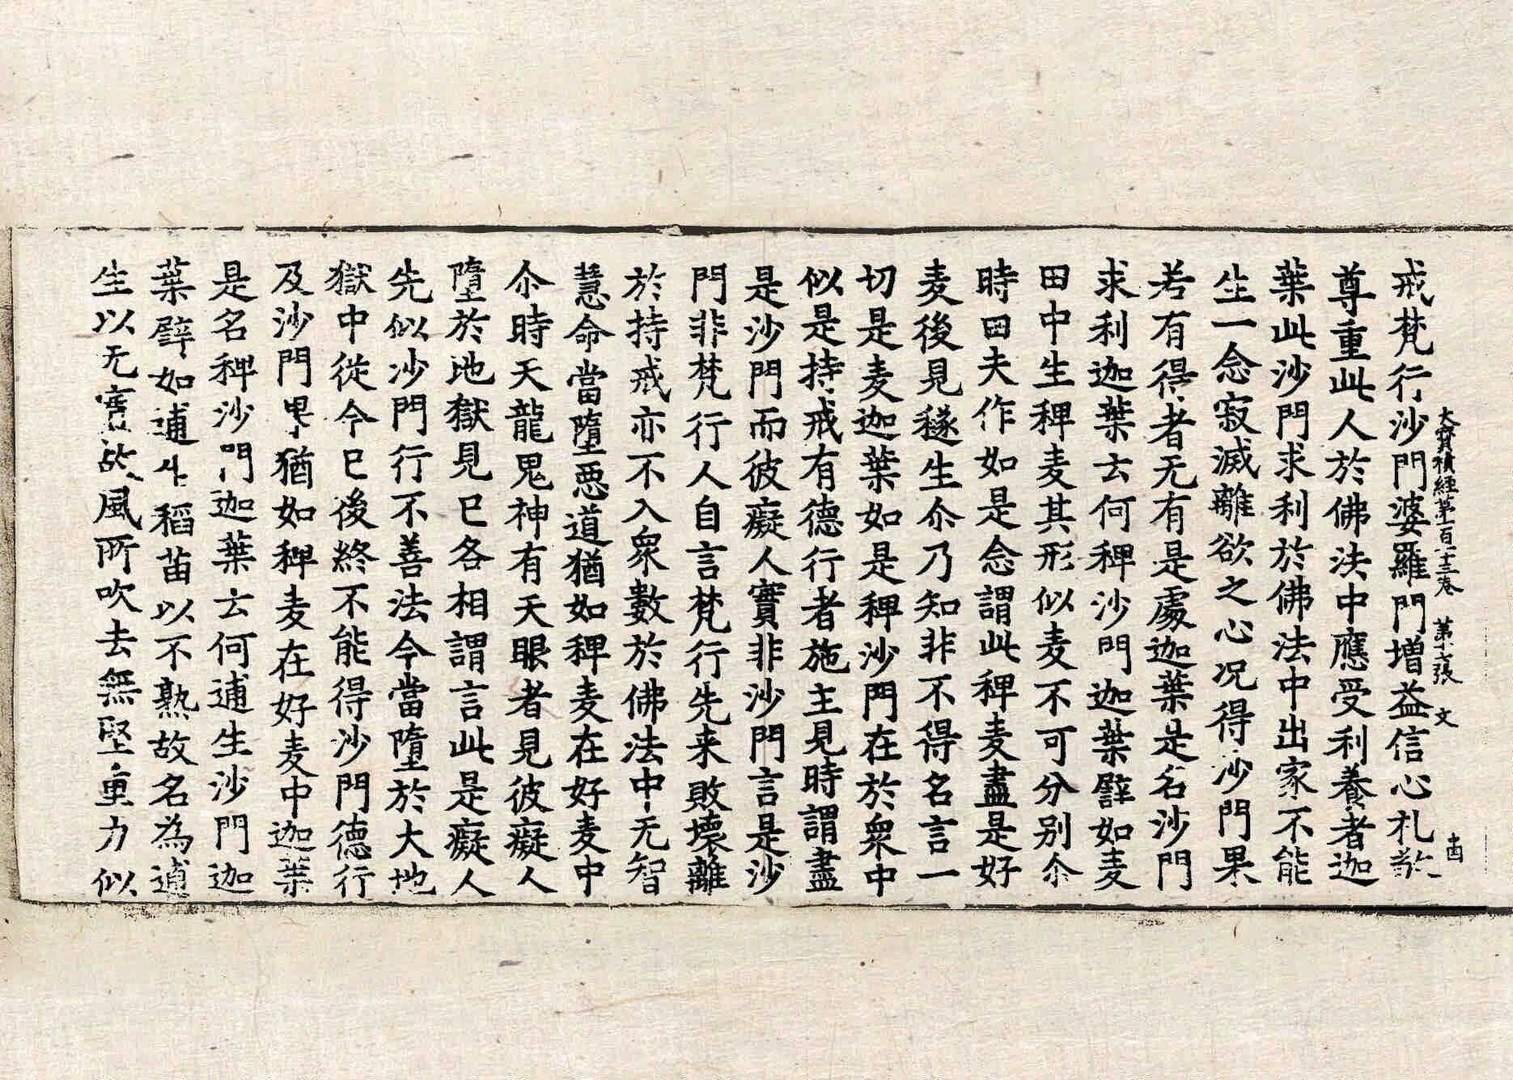 大寶積經第一百十三卷 第十張 文
戒梵行沙門婆羅門增益信心礼敬
尊重此人於佛法中應受利養者迦
葉此沙門求利於佛法中出家不能
生一念寂滅離欲之心况得沙門果
若有得者无有是處迦葉是名沙門
求利迦葉云何稗沙門迦葉譬如麦
田中生稗麦其形似麦不可分别尒
時田夫作如是念謂此稗麦盡是好
麦後見穟生尒乃知非不得名言一
切是麦迦葉如是稗沙門在於衆中
似是持戒有德行者施主見時謂盡
是沙門而彼癡人實非沙門言是沙
門非梵行人自言梵行先来敗壞離
於持戒亦不入衆數於佛法中无智
慧命當墮悪道猶如稗麦在好麦中
尒時天龍鬼神有天眼者見彼癡人
墮於地獄見已各相謂言此是癡人
先似沙門行不善法今當墮於大地
獄中従今已後終不能得沙門德行
及沙門果猶如稗麦在好麦中迦葉
是名稗沙門迦葉云何逋生沙門迦
葉譬如逋生稻苗以不熟故名為逋
生以无實故風所吹去無堅重力似